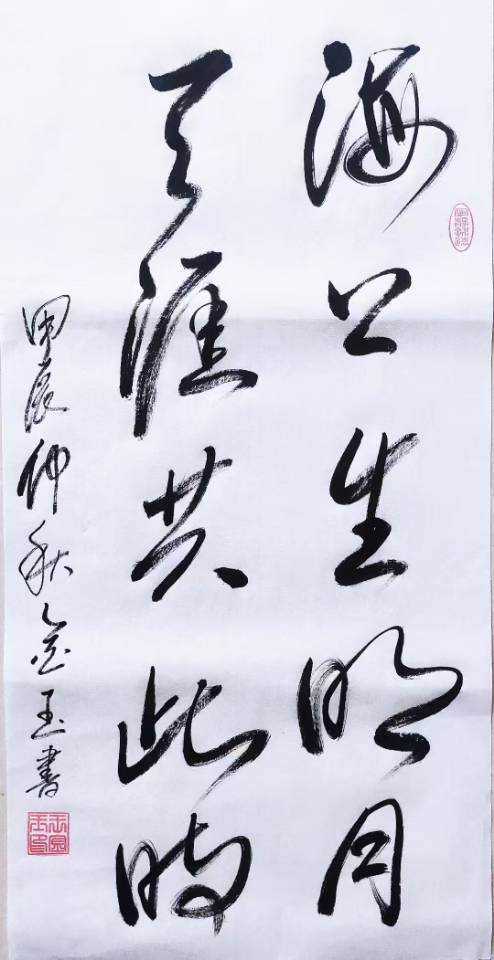 海上生明月
天涯共此时
甲辰仲秋金玉書